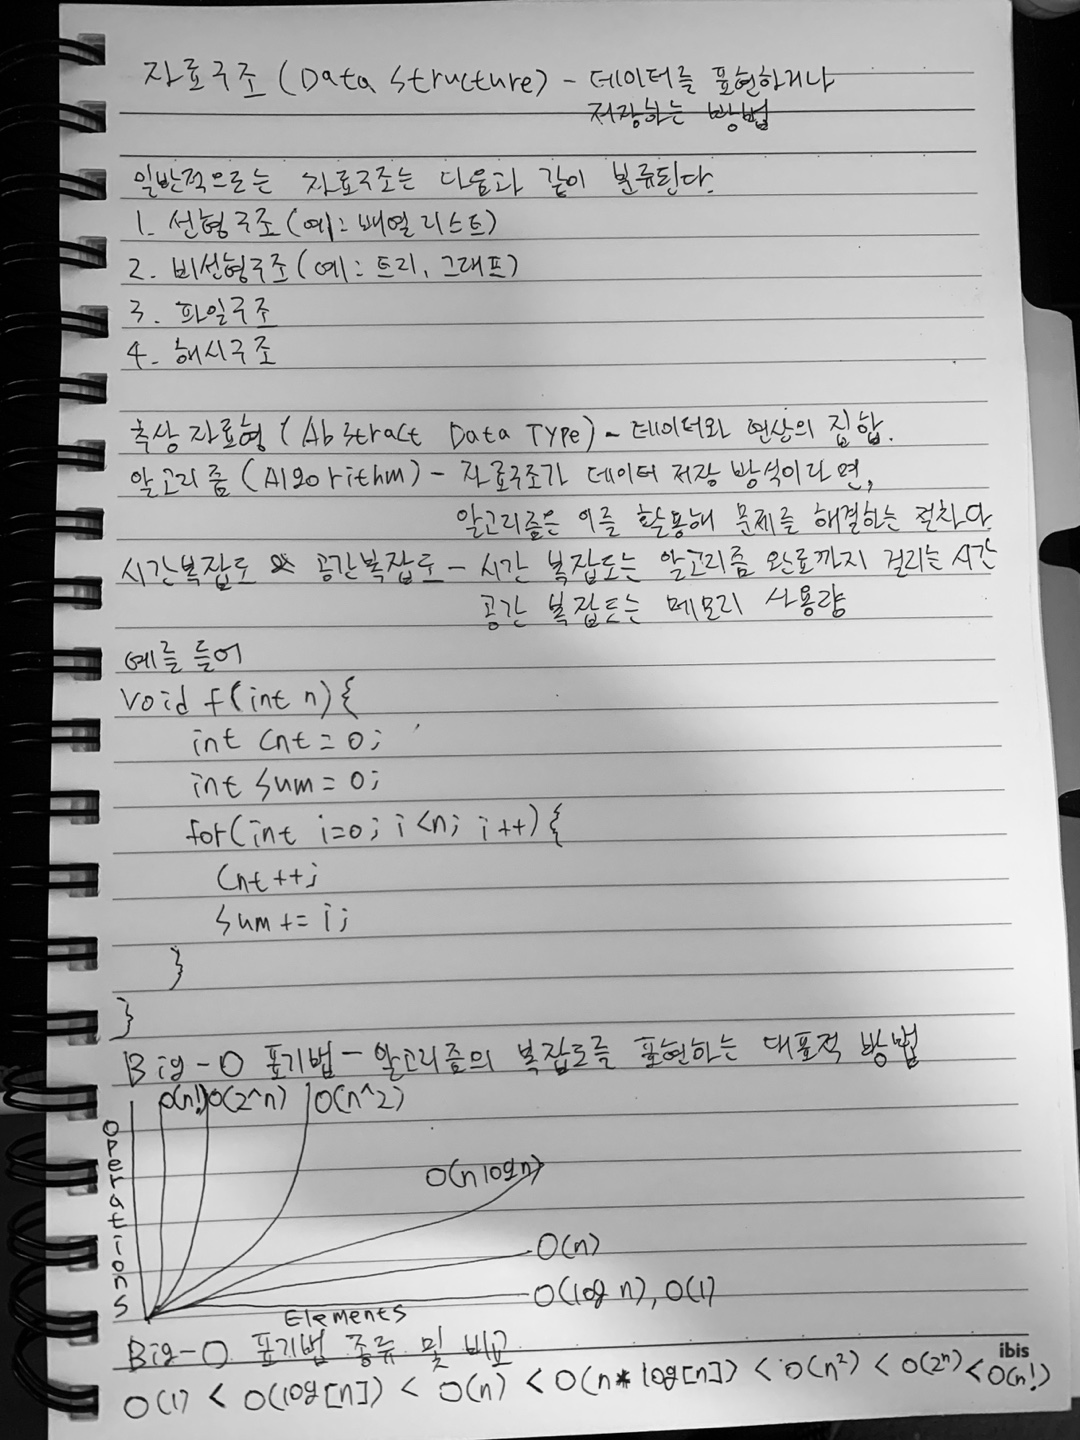 자료구조 (Data structure) - 데이터를 표현하거나
저장하는 방법
일반적으로는 자료구조는 다음과 같이 분류된다.
1. 선형구조(예: 배열 리스트)
2. 비선형구조(예: 트리, 그래프)
3. 파일구조
4. 해시구조
추상 자료형 (Abstract Data Type) - 데이터와 연산의 집합.
알고리즘 (Algorithm) - 자료구조가 데이터 저장 방식이라면,
알고리즘은 이를 활용해 문제를 해결하는 절차다
시간복잡도 & 공간복잡도 - 시간 복잡도는 알고리즘 완료까지 걸리는 시간
공간 복잡도는 메모리 사용량
예를 들어
void f(int n){
int cnt = 0;
int sum = 0;
for(int i=0; i<n; i++){
cnt++;
sum += i;
}
}
Big-O 표기법 - 알고리즘의 복잡도를 표현하는 대표적 방법
O(n!) O(2^n) O(n^2)
Operations
O(nlogn)
O(n)
O(log n), O(1)
Elements
Big-O 표기법 종류 및 비교
ibis
O(1) < O(log[n]) < O(n) < O(n* log[n]) < O(n²) < O(2ⁿ) < O(n!)